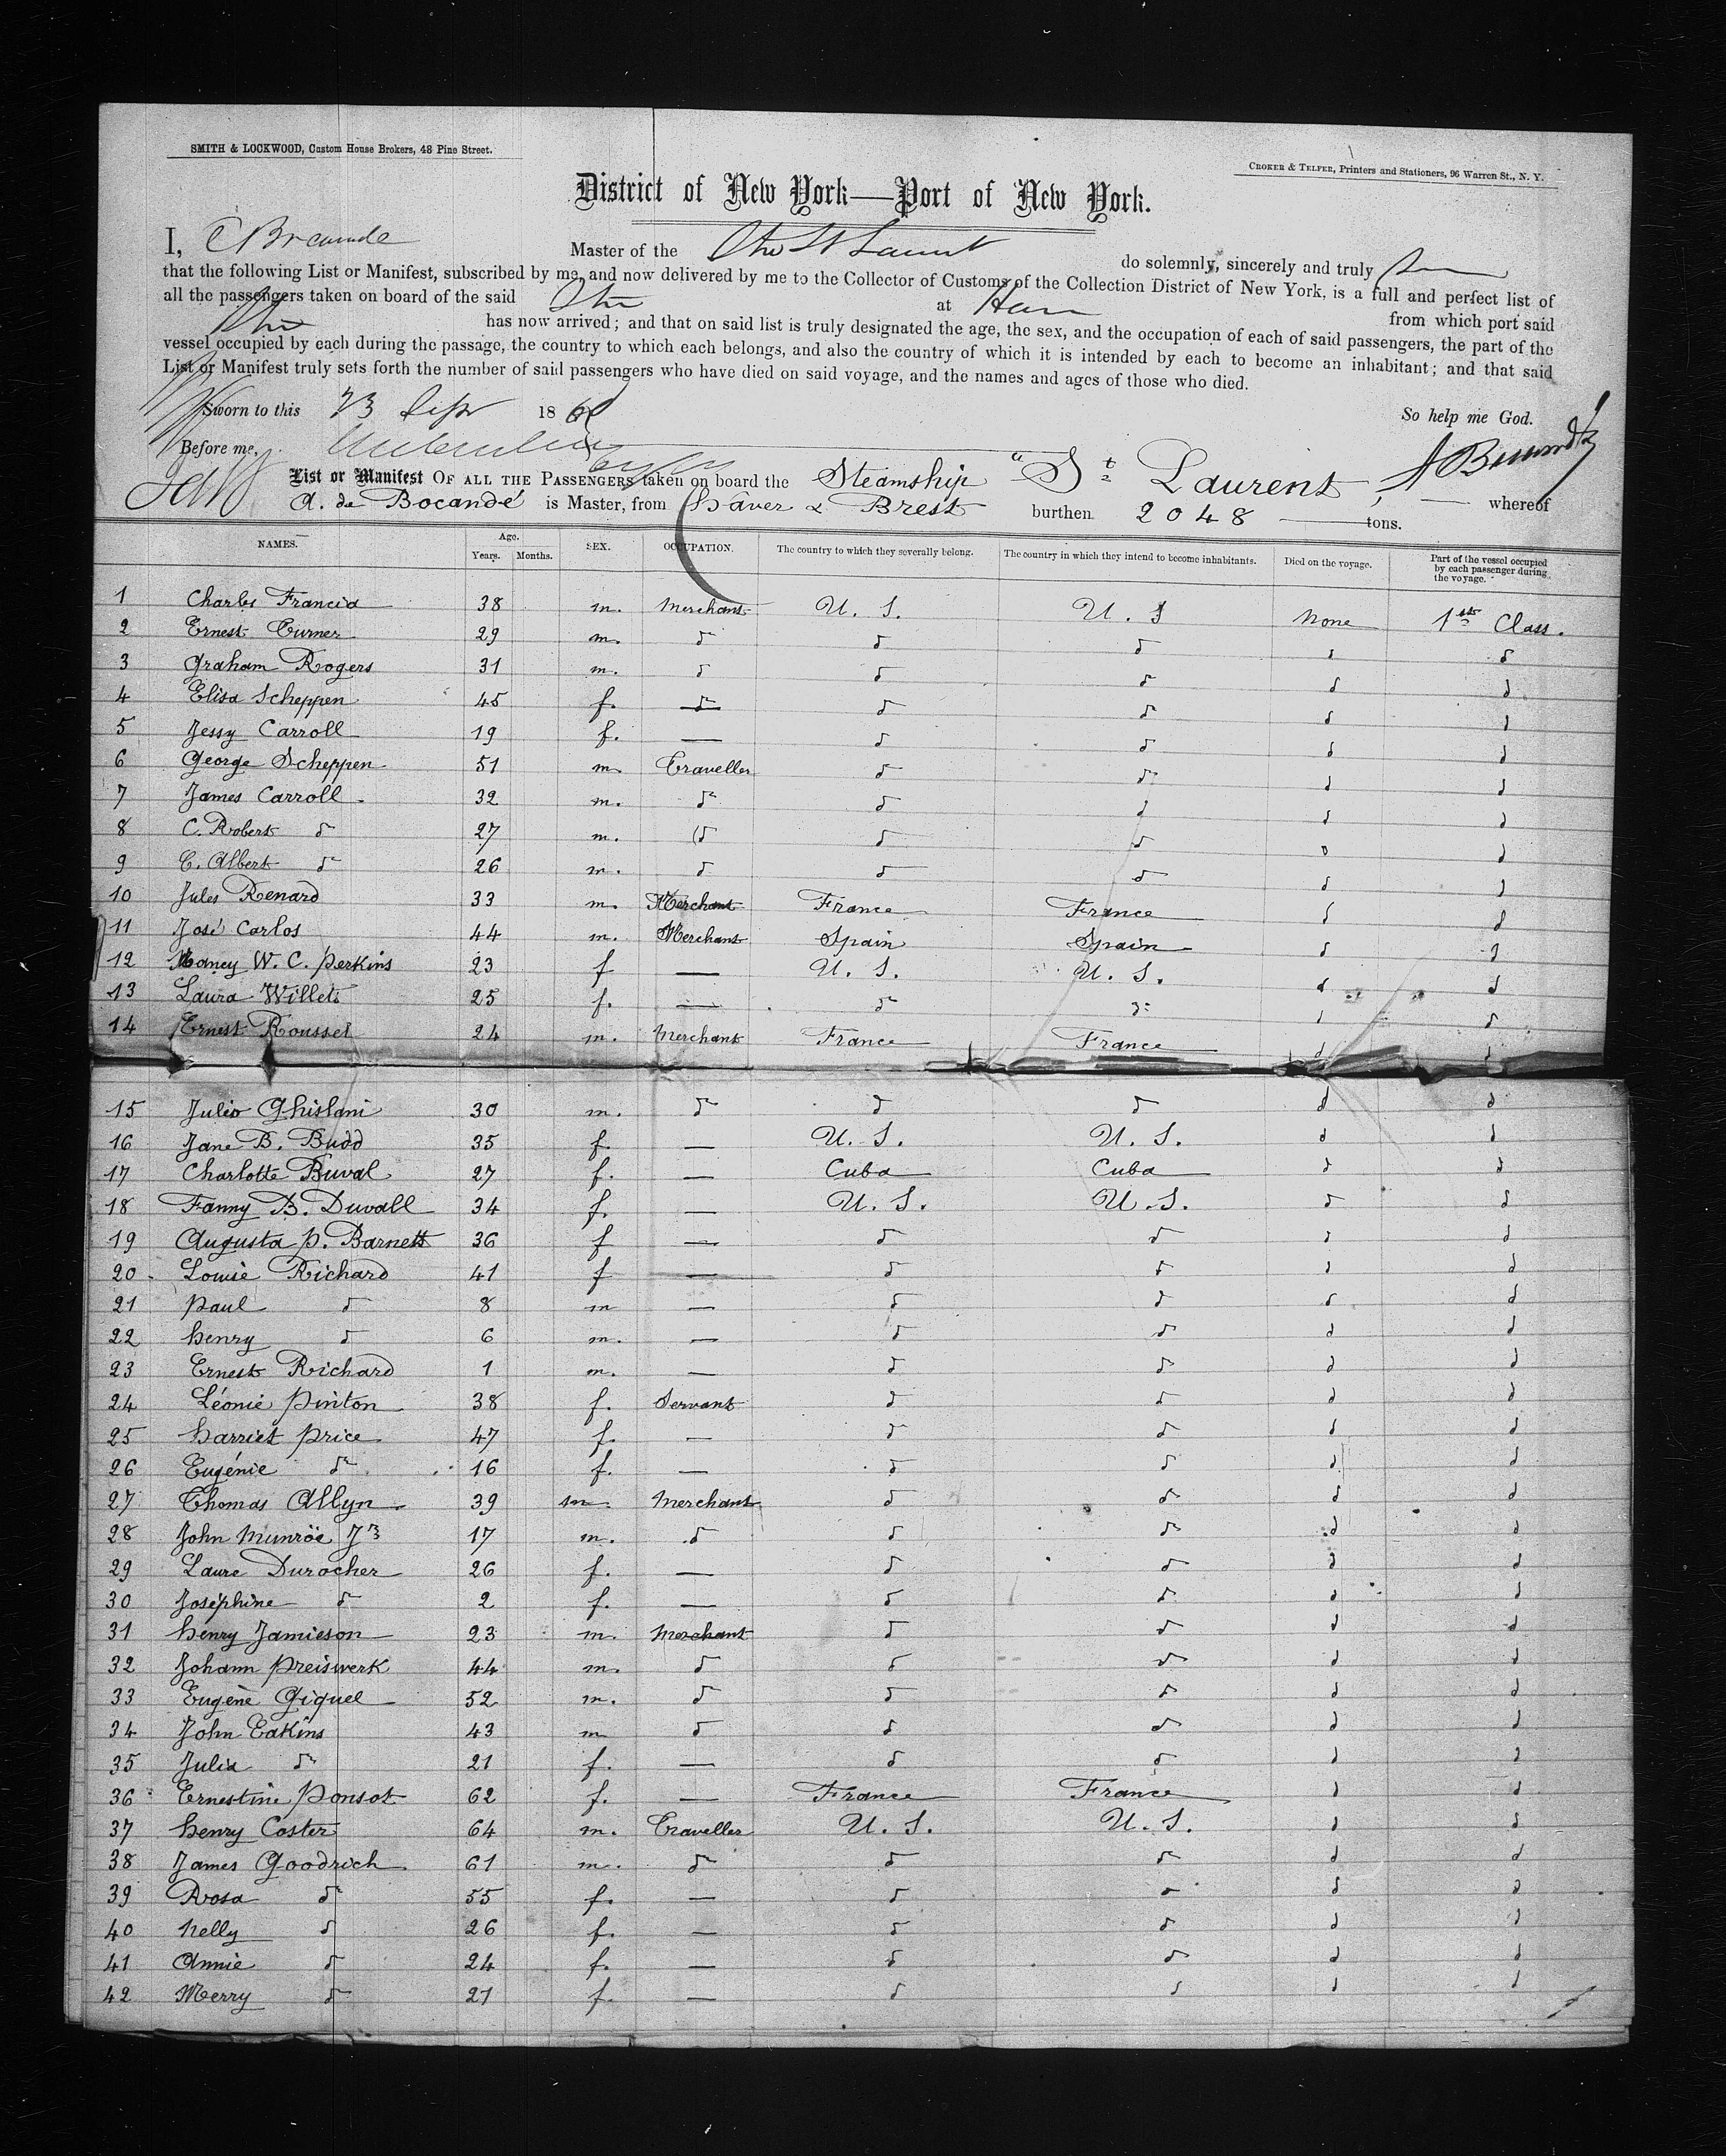 SMITH & LOCKWOOD, Custom House Brokers, 48 Pine Street.
CROKER & TELFER, Printers and Stationers, 96 Warren St., N. Y.
District of New York—Port of New York.
I, Master of the do solemnly, sincerely and truly
that the following List or Manifest, subscribed by me, and now delivered by me to the Collector of Customs of the Collection District of New York, is a full and perfect list of
all the passengers taken on board of the said at from which port said
has now arrived; and that on said list is truly designated the age, the sex, and the occupation of each of said passengers, the part of the
vessel occupied by each during the passage, the country to which each belongs, and also the country of which it is intended by each to become an inhabitant; and that said
List or Manifest truly sets forth the number of said passengers who have died on said voyage, and the names and ages of those who died.
Sworn to this 23 Sepr 18 So help me God.
Before me,
List or Manifest OF ALL THE PASSENGERS taken on board the Steamship "St Laurent, whereof
A. de Bocandé is Master, from Hâver & Brest burthen 2048 tons.
NAMES. Age. Years. Months. SEX. OCCUPATION. The country to which they severally belong. The country in which they intend to become inhabitants. Died on the voyage. Part of the vessel occupied by each passenger during the voyage.
1 Charles Francia 38 m. Merchant U. S. U. S None 1st Class.
2 Ernest Turner 29 m. d d d d d
3 Graham Rogers 31 m. d d d d d
4 Elisa Scheppen 45 f. — d d d d
5 Jessy Carroll 19 f. — d d d d
6 George Scheppen 51 m. Traveller d d d d
7 James Carroll 32 m. d d d d d
8 C. Robert d 27 m. d d d d d
9 C. Albert d 26 m. d d d d d
10 Jules Renard 33 m. Merchant France France d d
11 José Carlos 44 m. Merchant Spain Spain d d
12 Nancy W. C. Perkins 23 f — U. S. U. S. d d
13 Laura Willets 25 f. — d d d d
14 Ernest Roussel 24 m. Merchant France France d d
15 Julio Ghislani 30 m. d d d d d
16 Jane B. Budd 35 f. — U. S. U. S. d d
17 Charlotte Buval 27 f. — Cuba Cuba d d
18 Fanny B. Duvall 34 f. — U. S. U. S. d d
19 Augusta P. Barnett 36 f — d d d d
20 Louise Richard 41 f — d d d d
21 Paul d 8 m — d d d d
22 Henry d 6 m. — d d d d
23 Ernest Richard 1 m. — d d d d
24 Léonie Pinton 38 f. Servant d d d d
25 Harriet Price 47 f. — d d d d
26 Eugénie d 16 f. — d d d d
27 Thomas Allyn 39 m Merchant d d d d
28 John Munröe Jr 17 m. d d d d d
29 Laure Durocher 26 f. — d d d d
30 Joséphine d 2 f. — d d d d
31 Henry Jamieson 23 m. Merchant d d d d
32 Johann Preiswerk 44 m. d d d d d
33 Eugène Giquel 52 m. d d d d d
34 John Eakins 43 m d d d d d
35 Julia d 21 f. — d d d d
36 Ernestine Ponsot 62 f. — France France d d
37 Henry Coster 64 m. Traveller U. S. U. S. d d
38 James Goodrich 61 m. d d d d d
39 Rosa d 55 f. — d d d d
40 Nelly d 26 f. — d d d d
41 Annie d 24 f. — d d d d
42 Merry d 21 f. — d d d d